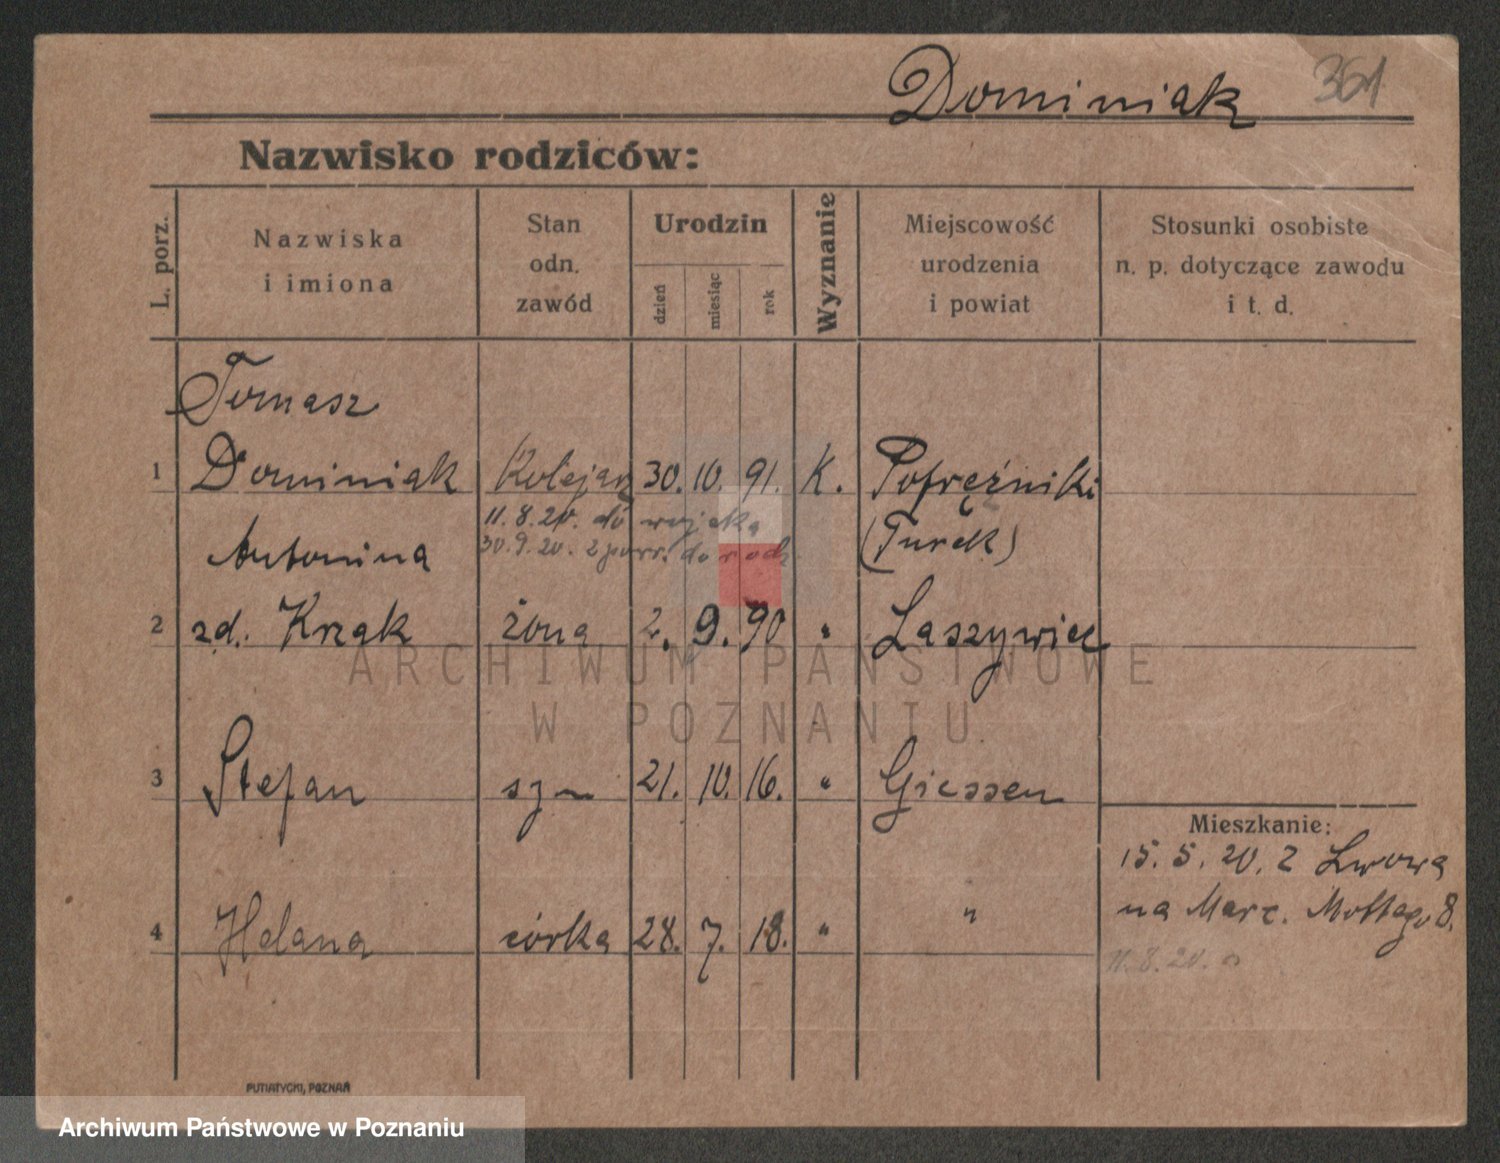 Dominiak 361
Nazwisko rodziców:
L. porz.
Nazwiska
i imiona
Stan
odn.
zawód
Urodzin
dzień
miesiąc
rok
Wyznanie
Miejscowość
urodzenia
i powiat
Stosunki osobiste
n. p. dotyczące zawodu
i t. d.
Tomasz
1 Dominiak Kolejarz 30. 10. 91. K. Potrężniki
11.8.20. do wojska
(Turek)
Antonina
30.9.20. z powr. do rodz.
2 zd. Krzak żona 2. 9. 90 " Laszywiec
3 Stefan syn 21. 10. 16. " Giessen
Mieszkanie:
15. 5. 20. z Lwowa
na Marc. Mottego 8.
4 Helana córka 28. 7. 18. " "
11.8.20.
PUTIATYCKI, POZNAŃ
ARCHIWUM PAŃSTWOWE
W POZNANIU
Archiwum Państwowe w Poznaniu